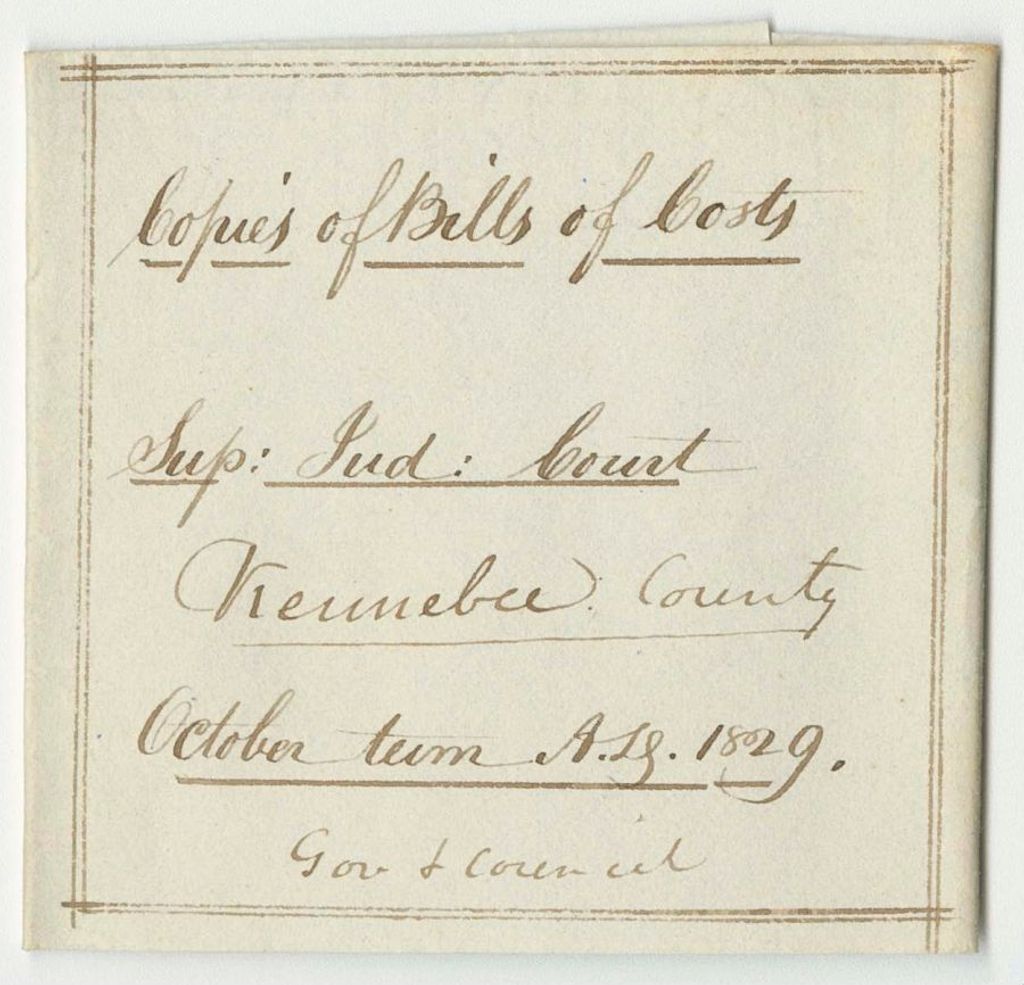 Copies of Bills of Costs
Sup: Jud: Court
Kennebec County
October term A.D. 1829.
Gov & Council